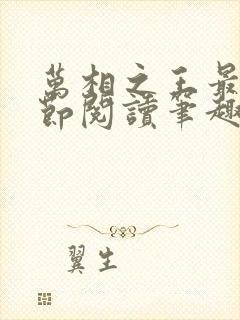 萬相之王最
節閱讀筆趣
翼生